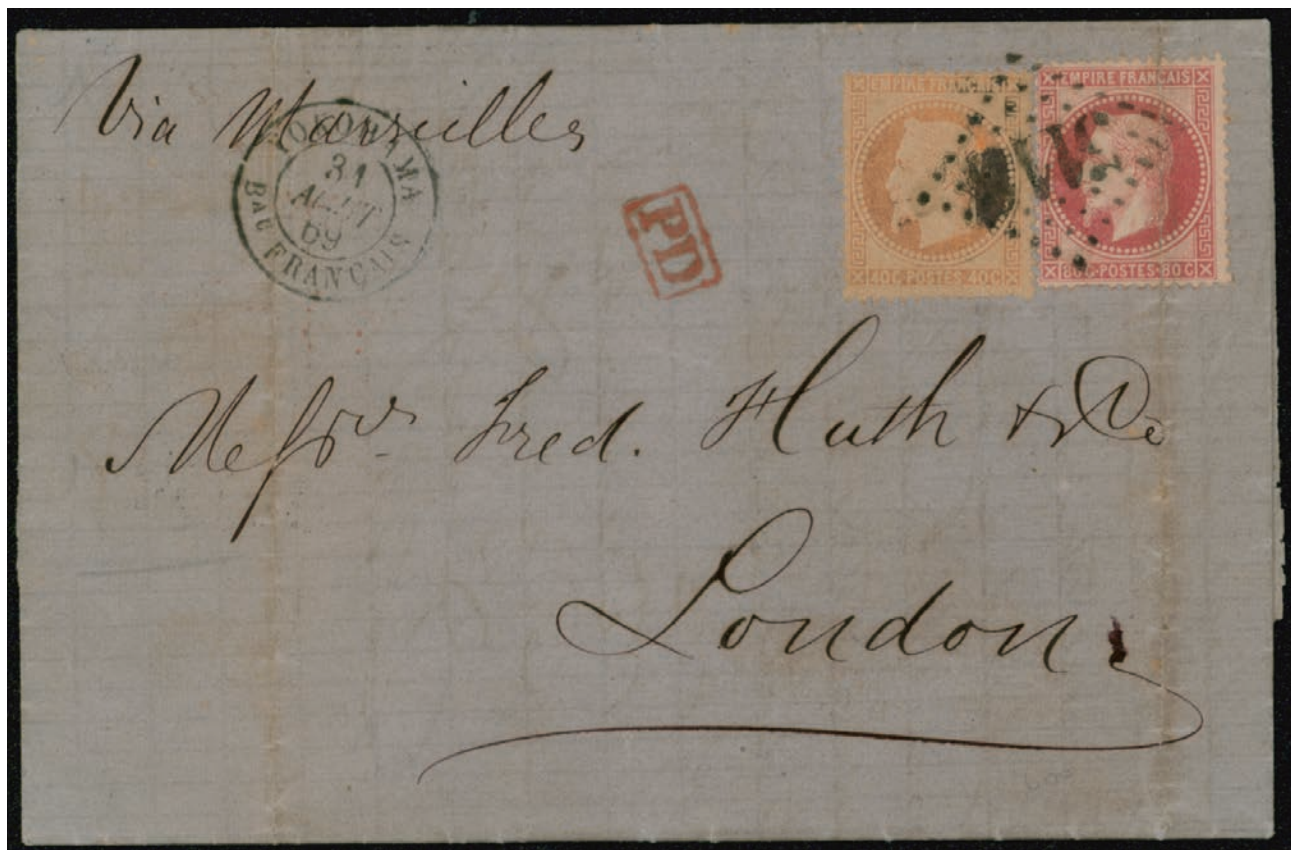 Via Marseilles
31
AOUT
69
Bau FRANÇAIS
PD
EMPIRE FRANÇAIS
40 C · POSTES · 40 C
EMPIRE FRANÇAIS
80 C · POSTES · 80 C
Messrs. Fred. Huth & Co
London